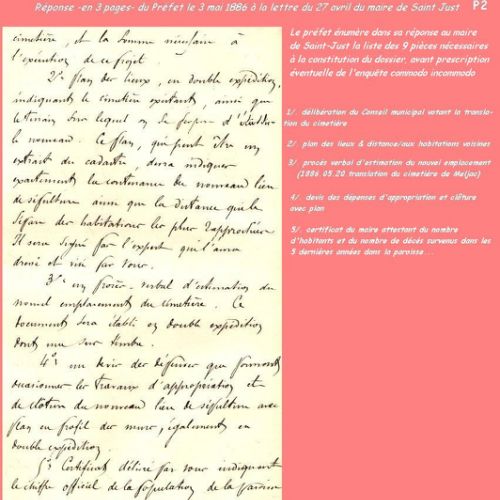 Réponse -en 3 pages- du Préfet le 3 mai 1886 à la lettre du 27 avril du maire de Saint Just P2
cimetière, et la somme nécessaire à
l'exécution de ce projet.
2° plan des lieux, en double expédition,
indiquant le cimetière existant, ainsi que
le terrain sur lequel on se propose d'établir
le nouveau. Ce plan, qui peut être un
extrait du cadastre, devra indiquer
exactement la contenance du nouveau lieu
de sépulture ainsi que la distance qui le
sépare des habitations les plus rapprochées
Il sera signé par l'expert qui l'aura
dressé et visé par vous.
3° un procès-verbal d'estimation du
nouvel emplacement du cimetière. Ce
document sera établi en double expédition
dont une sur timbre.
4° un devis des dépenses que pourront
occasionner les travaux d'appropriation et
de clôture du nouveau lieu de sépulture avec
plan en profil des murs, également en
double expédition
5° Certificat délivré par vous indiquant
le chiffre officiel de la population de la paroisse
Le préfet énumère dans sa réponse au maire
de Saint-Just la liste des 9 pièces nécessaires
à la constitution du dossier, avant prescription
éventuelle de l'enquête commodo incommodo
1/. délibération du Conseil municipal votant la transla-
tion du cimetière
2/. plan des lieux & distance/aux habitations voisines
3/. procès verbal d'estimation du nouvel emplacement
(1886.05.20 translation du cimetière de Meljac)
4/. devis des dépenses d'appropriation et clôture
avec plan
5/. certificat du maire attestant du nombre
d'habitants et du nombre de décès survenus dans les
5 dernières années dans la paroisse...